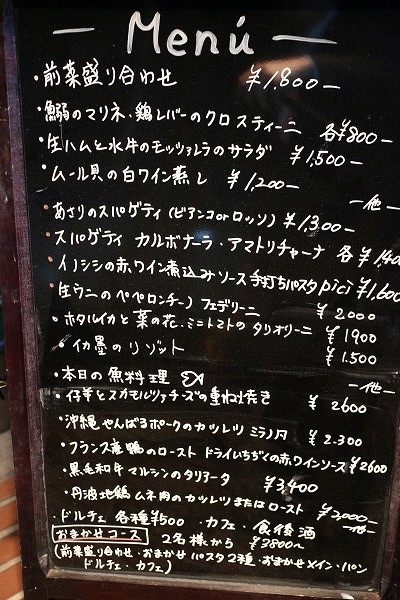 Menú
・前菜盛り合わせ ¥1,800−
・鰯のマリネ・鶏レバーのクロスティーニ 各¥800−
・生ハムと水牛のモッツァレラのサラダ ¥1,500−
・ムール貝の白ワイン蒸し ¥1,200−
−他−
・あさりのスパゲティ(ビアンコorロッソ) ¥1,300−
・スパゲティ カルボナーラ・アマトリチャーナ 各¥1,400
・イノシシの赤ワイン煮込みソース手打ちパスタpici ¥1,600
・生ウニのペペロンチーノ フェデリーニ ¥2000
・ホタルイカと菜の花・ミニトマトのタリオリーニ ¥1900
・イカ墨のリゾット ¥1.500
−他−
・本日の魚料理
・仔羊とスカモルツァチーズの重ね焼き ¥2600
・沖縄やんばるポークのカツレツ ミラノ風 ¥2.300
・フランス産鴨のロースト ドライいちぢくの赤ワインソース ¥2600
・黒毛和牛マルシンのタリアータ ¥3,400
・丹波地鶏ムネ肉のカツレツまたはロースト ¥2,000−
−他−
・ドルチェ 各種¥500 ・カフェ・食後酒
おまかせコース 2名様から ¥3800〜
(前菜盛り合わせ・おまかせパスタ2種・おまかせメイン・パン
ドルチェ・カフェ)